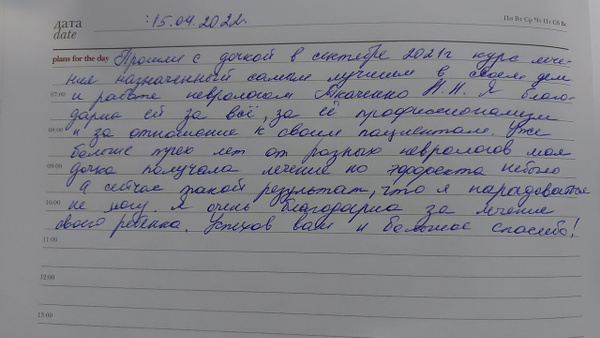 дата :15.04.2022. Пн Вт Ср Чт Пт Сб Вс
date
plans for the day Прошли с дочкой в сентябре 2021г курс лече-
ния назначенный самым лучшим в своем деле
07:00 и работе неврологом Ткаченко Н.Н. Я благо-
дарна ей за всё, за её профессионализм
08:00 и за отношение к своим пациентам. Уже
больше трех лет от разных неврологов моя
09:00 дочка получала лечение но эффекта небыло
А сейчас такой результат, что я нарадоваться
10:00 не могу. Я очень благодарна за лечение
своего ребенка. Успехов вам и большое спасибо!
11:00
12:00
13:00